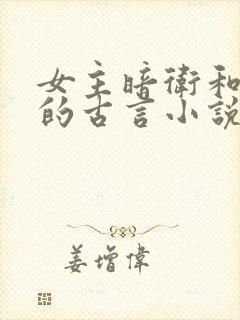 女主暗衛和
的古言小說
姜增偉